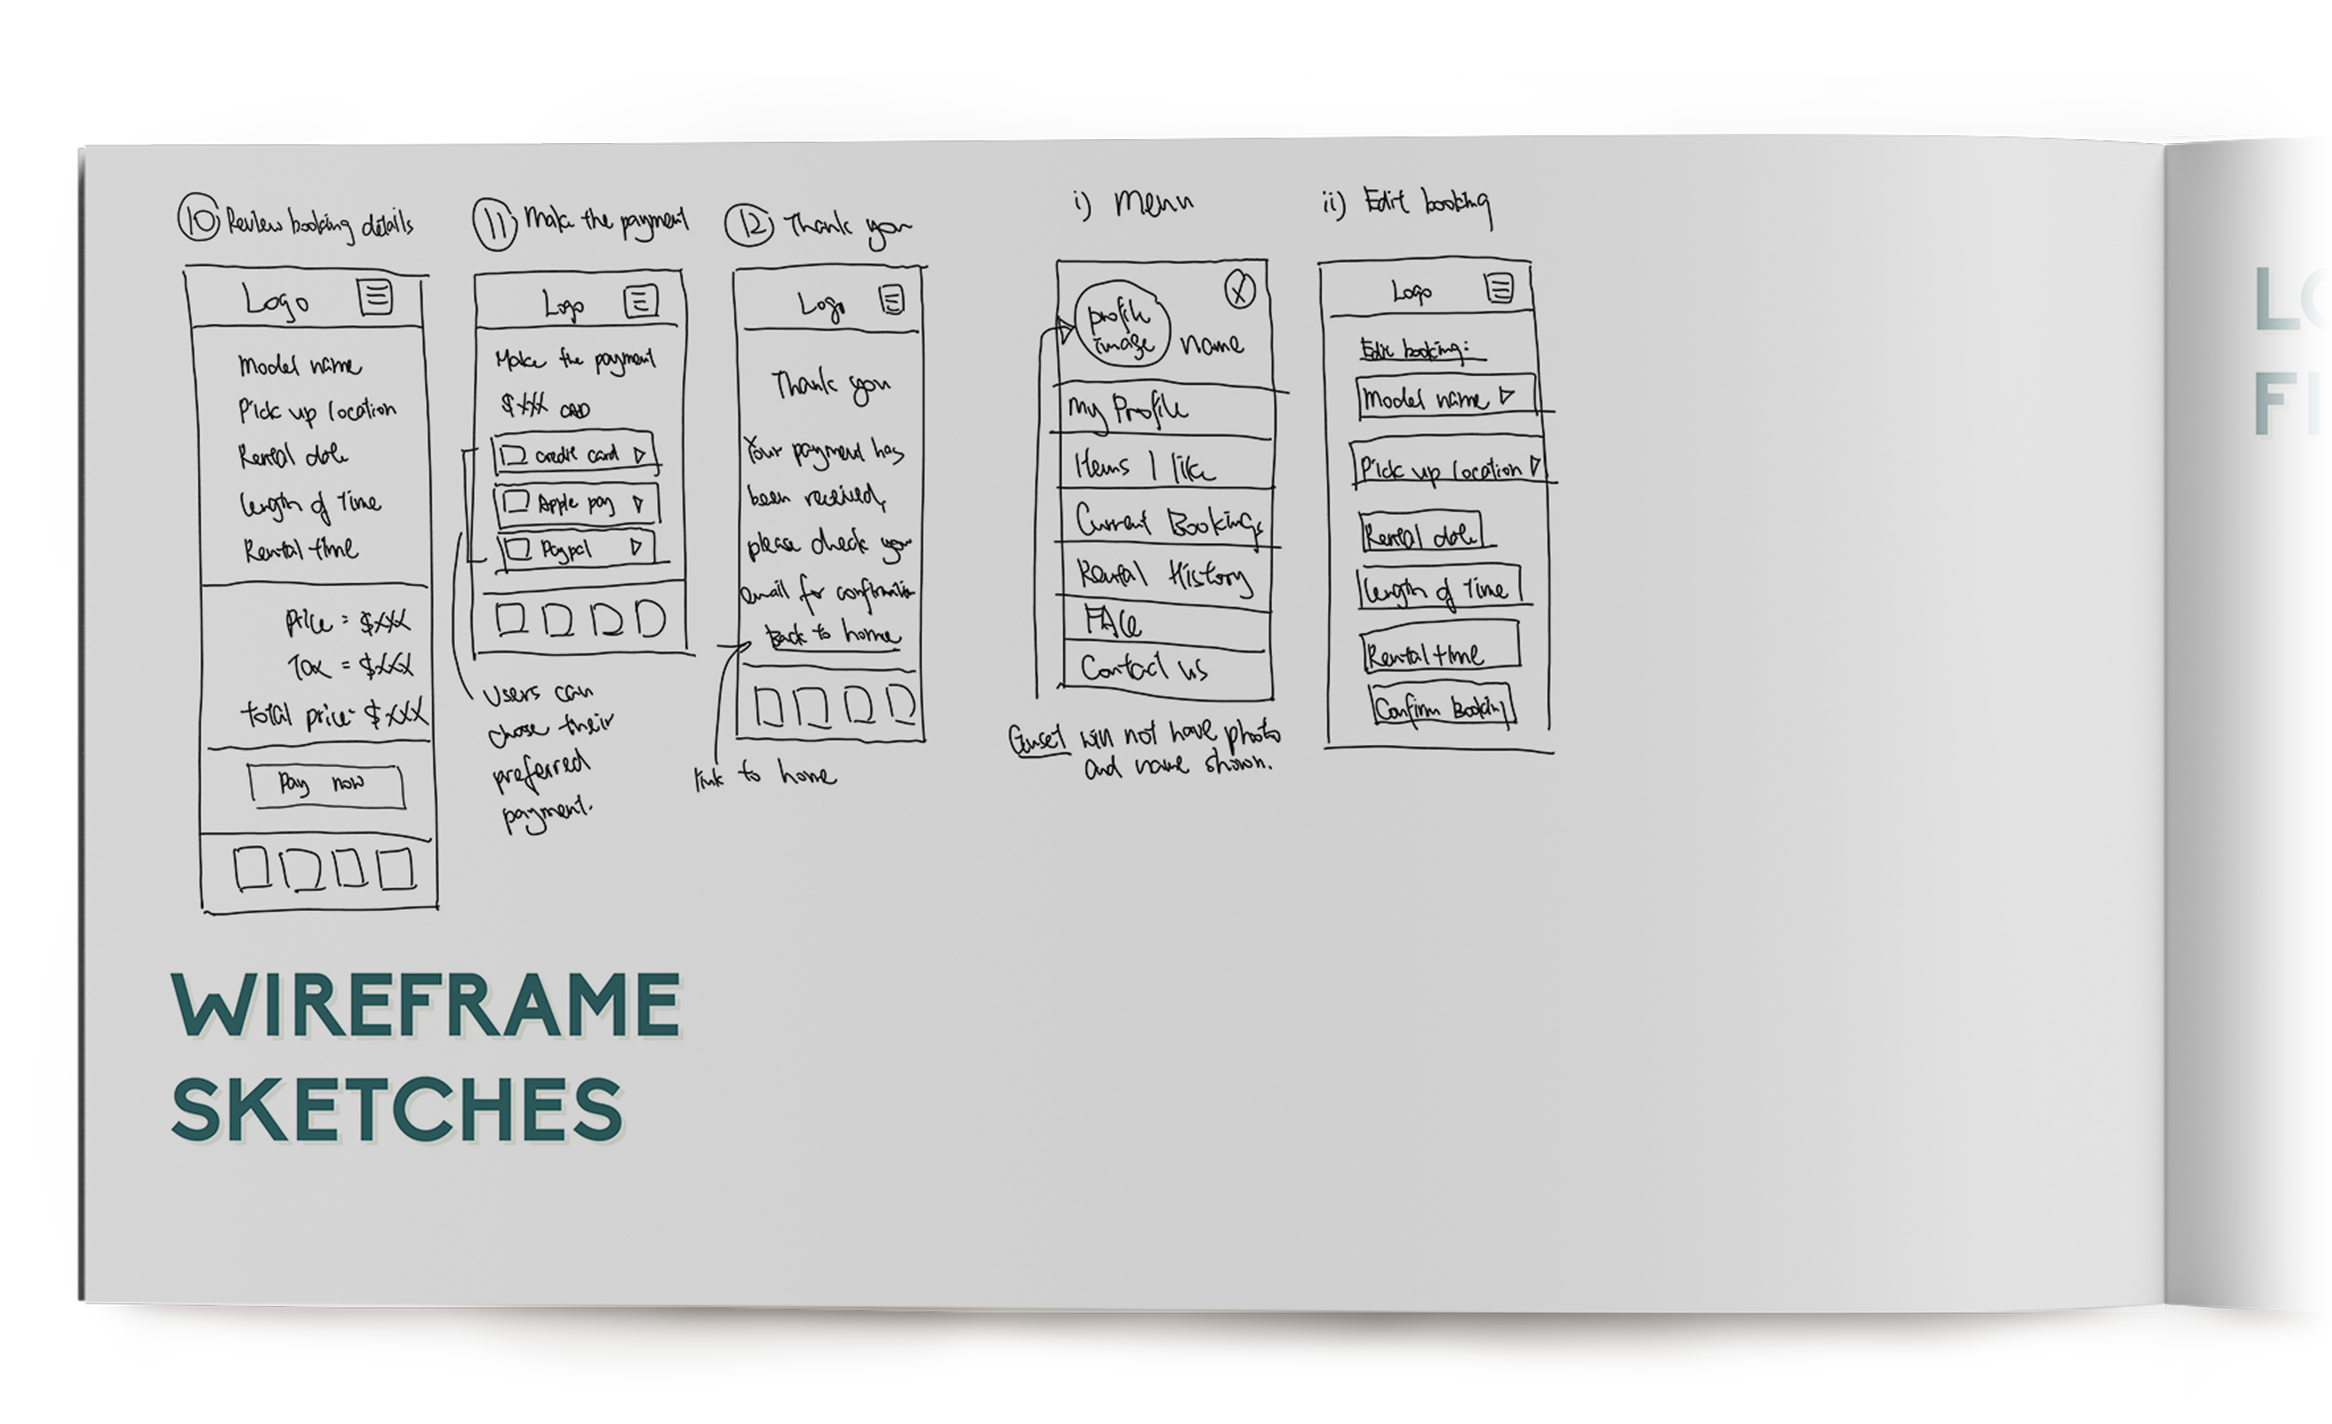 10 Review booking details
Logo
Model name
Pick up location
Rental date
length of time
Rental time
price = $xxx
Tax = $xxx
total price = $xxx
Pay now
11 Make the payment
Logo
Make the payment
$xxx CAD
credit card
Apple pay
Paypal
Users can
chose their
preferred
payment.
12 Thank you
Logo
Thank you
Your payment has
been received,
please check your
email for confirmation
Back to home
link to home
i) Menu
profile
image
name
My Profile
Items I like
Current Bookings
Rental History
FAQ
Contact us
Guest will not have photo
and name shown.
ii) Edit booking
Logo
Edit booking:
Model name
Pick up location
Rental date
length of time
Rental time
Confirm Booking
WIREFRAME
SKETCHES